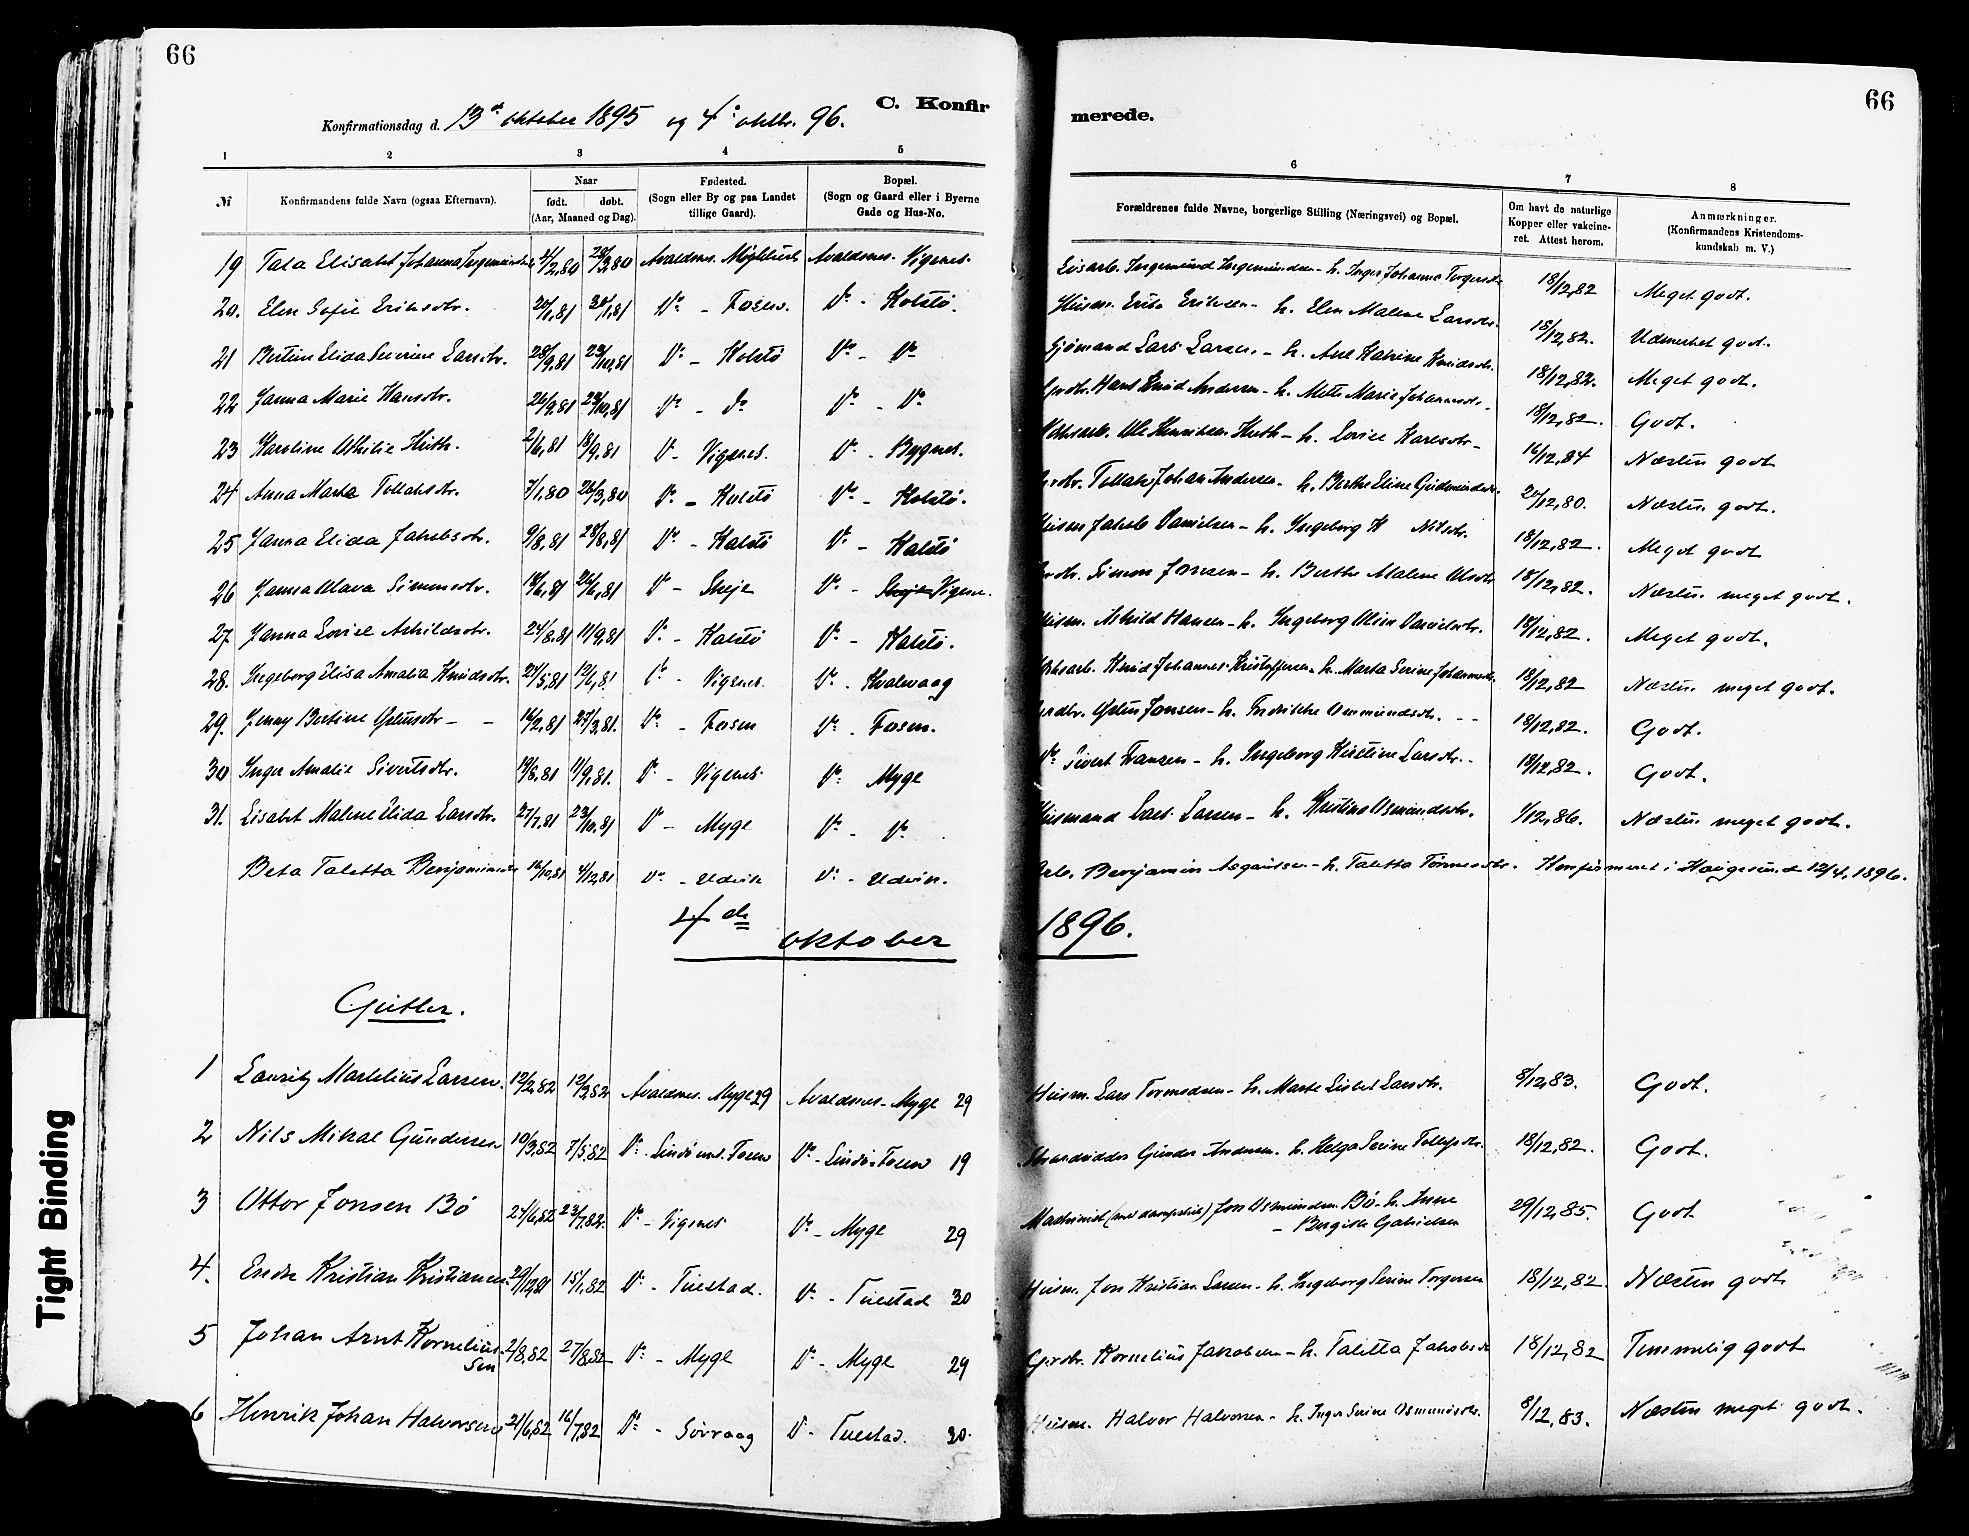 66
66
C. Konfir
merede.
Konfirmationsdag d. 13de oktober 1895 og 4de oktbr. 96.
1 2 3 4 5 6 7 8
№
Konfirmandens fulde Navn (ogsaa Efternavn).
Naar
født. døbt.
(Aar, Maaned og Dag).
Fødested.
(Sogn eller By og paa Landet
tillige Gaard).
Bopæl.
(Sogn og Gaard eller i Byerne
Gade og Hus-No.
Forældrenes fulde Navne, borgerlige Stilling (Næringsvei) og Bopæl.
Om havt de naturlige
Kopper eller vakcine-
ret. Attest herom.
Anmærkninger.
(Konfirmandens Kristendoms-
kundskab m. V.)
19 Elisabet Johanna 2,80 3,80 Avaldsnes Avaldsnes. Vigsnes. Ingemund Ingemundsen – h. Inger Johanna 18/12,82 Meget godt.
20. Elen Sofie Eriksdtr. 1,81 1,81 Do – Fosen. Do – Kolstø. Husm. Erik Eriksen – h. Elen Malene Larsdtr. 18/12,82. Udmerket godt.
21 Elida Severine Larsdtr. 28/9,81 23/10,81 Do – Kolstø Do – Do Sjømand Lars Larsen. – h. Ane Katrine Knudsdtr. 18/12,82. Meget godt.
22 Janna Marie Hansdtr. 26/9,81 23/10,81 Do – Do Do – Do Hans Knud Andersen – h. Mette Marie 18/12,82. Godt.
23 Karoline Huth. 2/6,81 18/9,81 Do – Vigsnes. Do – Bygnes. Ole Henriksen Huth – h. Lovise Karlsdtr – 16/12,84 Næsten godt
24 Anna Marta Tollaksdtr. 7/1,80 28/3,80 Do – Kolstø Do – Kolstø. Tollak Johan Andersen – h. Berthe Eline 12,80. Næsten godt.
25 Janna Elida Jakobsdtr. 9/8,81 28/8,81 Do – Kolstø Do – Kolstø Husm Jakob Danielsen – h. Ingeborg K Nilsdtr. 18/12,82. Meget godt
26 Janna Olava Simonsdtr. 6,81 26/6,81 Do – Skeje Do – Skeje Vigsnes. Simon Jonsen – h. Berthe Malene Olsdtr 18/12,82. Næsten meget godt.
27 Janna Lovise Askildsdtr. 24/8,81 11/9,81 Do – Kolstø Do – Kolstø. Husm. Askild Hansen – h. Ingeborg Oline Danielsdtr. 18/12,82. Meget godt.
28. Ingeborg Elisa Amalia Knudsdtr. 24/5,81 12/6,81 Do – Vigsnes. Do – Kvalevaag Knud Johannes Kristoffersen – h. Marta Serine 18/12,82 Næsten meget godt.
29. Jenny Bertine Østensdtr – – 16/2,81 27/3,81. Do – Fosen Do – Fosen. Østen Jonsen – h. Fredrikke Osmundsdtr. – – 18/12,82. Godt.
30 Inger Amalie Sivertsdtr. 19/8,81 11/9,81. Do – Vigsnes Do Myge Do Sivert Hansen – h. Ingeborg Kristine Larsdtr. – 18/12,82. Godt.
31. Lisabet Malene Elida Larsdtr. 27/7,81 23/10,81 Do – Myge Do – Do Husmand Lars Larsen – h. Kristine Osmundsdtr. 1/12,86. Næsten meget godt.
Beta Taletta Benjaminsdtr 16/10,81 4/12,81 Do – Udvik Do – Udvik. Arb. Benjamin – h. Taletta Konfirmeret i Haugesund 12/4. 1896.
4de oktober 1896.
Gutter.
1 Lauritz Martelius Larsen. 12/2,82 12/3,82 Avaldsnes. Myge 29 Avaldsnes – Myge 29 Husm. Lars Tormodsen – h. Marte Lisbet Larsdtr. 8/12,83. Godt.
2 Nils Mikal Gundersen 10/3,82 7/5,82 Do – Fosen Do – Fosen 19 Gunder Andersen. h. Helga Serine 18/12,82. Godt.
3 Ottor Jonsen Bø 24/6,82 23/7,82. Do – Vigsnes Do – Myge 29 Maskinist Jon Osmundsen Bø – h. Anne
– Bergitte Gabrielsen 29/12,85. Godt
4. Endre Kristian Kristiansen 29/12,81 15/1,82 Do – Tuestad. Do – Tuestad 30 Husm. Jon Kristian Larsen – h. Ingeborg Serine Torgersen 18/12,82 Næsten godt
5 Johan Arnt Kornelius-
sen 2/8,82 27/8,82 Do – Myge Do – Myge 29 Grdbr. Kornelius Jakobsen – h. Taletta Jakobsdtr 18/12,82 Temmelig godt
6 Henrik Johan Halvorsen 21/6,82 16/7,82 Do – Sørvaag Do – Tuestad. 30. Husm. Halvor Halvorsen – h. Inger Serine Osmundsdtr. 8/12,83. Næsten meget godt.
Tight Binding